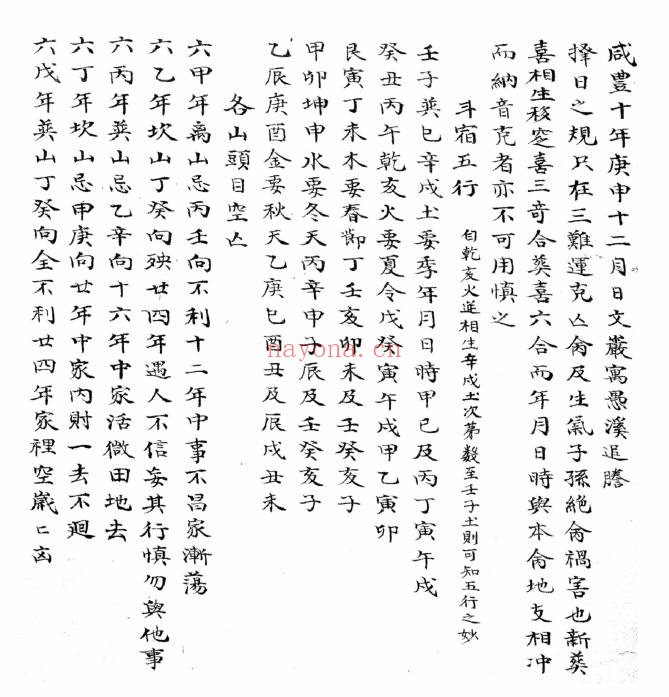 咸豊十年庚申十二月日文巖寓愚溪追謄
擇日之規只在三難運克亡命及生氣子孫絶命禍害也新葬
喜相生移窆喜三奇合葬喜六合而年月日時與本命地支相冲
而納音克者亦不可用慎之
斗宿五行 自乾亥火逆相生辛戌土次第数至壬子土則可知五行之妙
壬子巽巳辛戌土要季年月日時甲巳及丙丁寅午戌
癸丑丙午乾亥火要夏令戊癸寅午戌甲乙寅卯
艮寅丁未木要春節丁壬亥卯未及壬癸亥子
甲卯坤申水要冬天丙辛申子辰及壬癸亥子
乙辰庚酉金要秋天乙庚巳酉丑及辰戌丑未
各山頭目空亡
六甲年离山忌丙壬向不利十二年中事不昌家漸蕩
六乙年坎山丁癸向殃廿四年遇人不信妄其行慎勿與他事
六丙年巽山忌乙辛向十六年中家活微田地去
六丁年坎山忌甲庚向廿年中家内財一去不廻
六戊年巽山丁癸向全不利廿四年家裡空嵗〻凶
nayona.cn